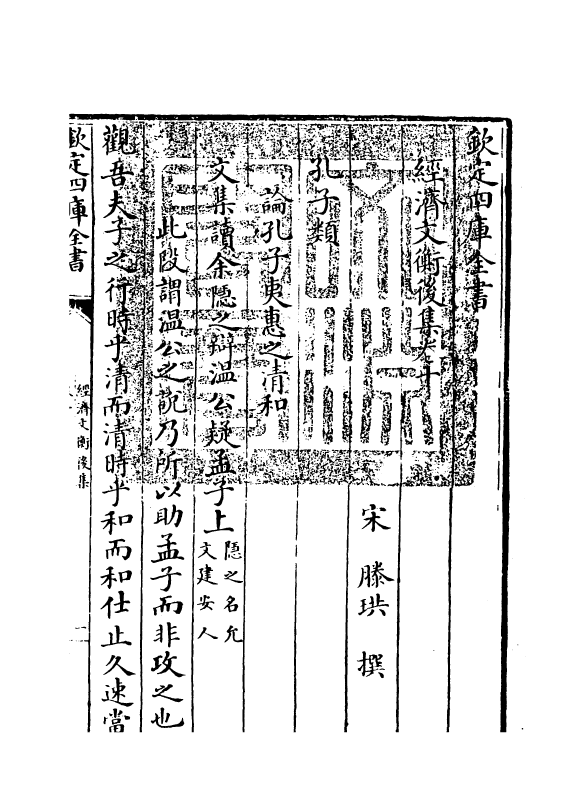 欽定四庫全書
經濟文衡後集卷十
宋 滕珙 撰
孔子類
論孔子夷惠之清和
文集讀余隱之辯温公疑孟子上隱之名允文建安人
此段謂温公之說乃所以助孟子而非攻之也
觀吾夫子之行時乎清而清時乎和而和仕止久速當
欽定四庫全書
經濟文衡後集